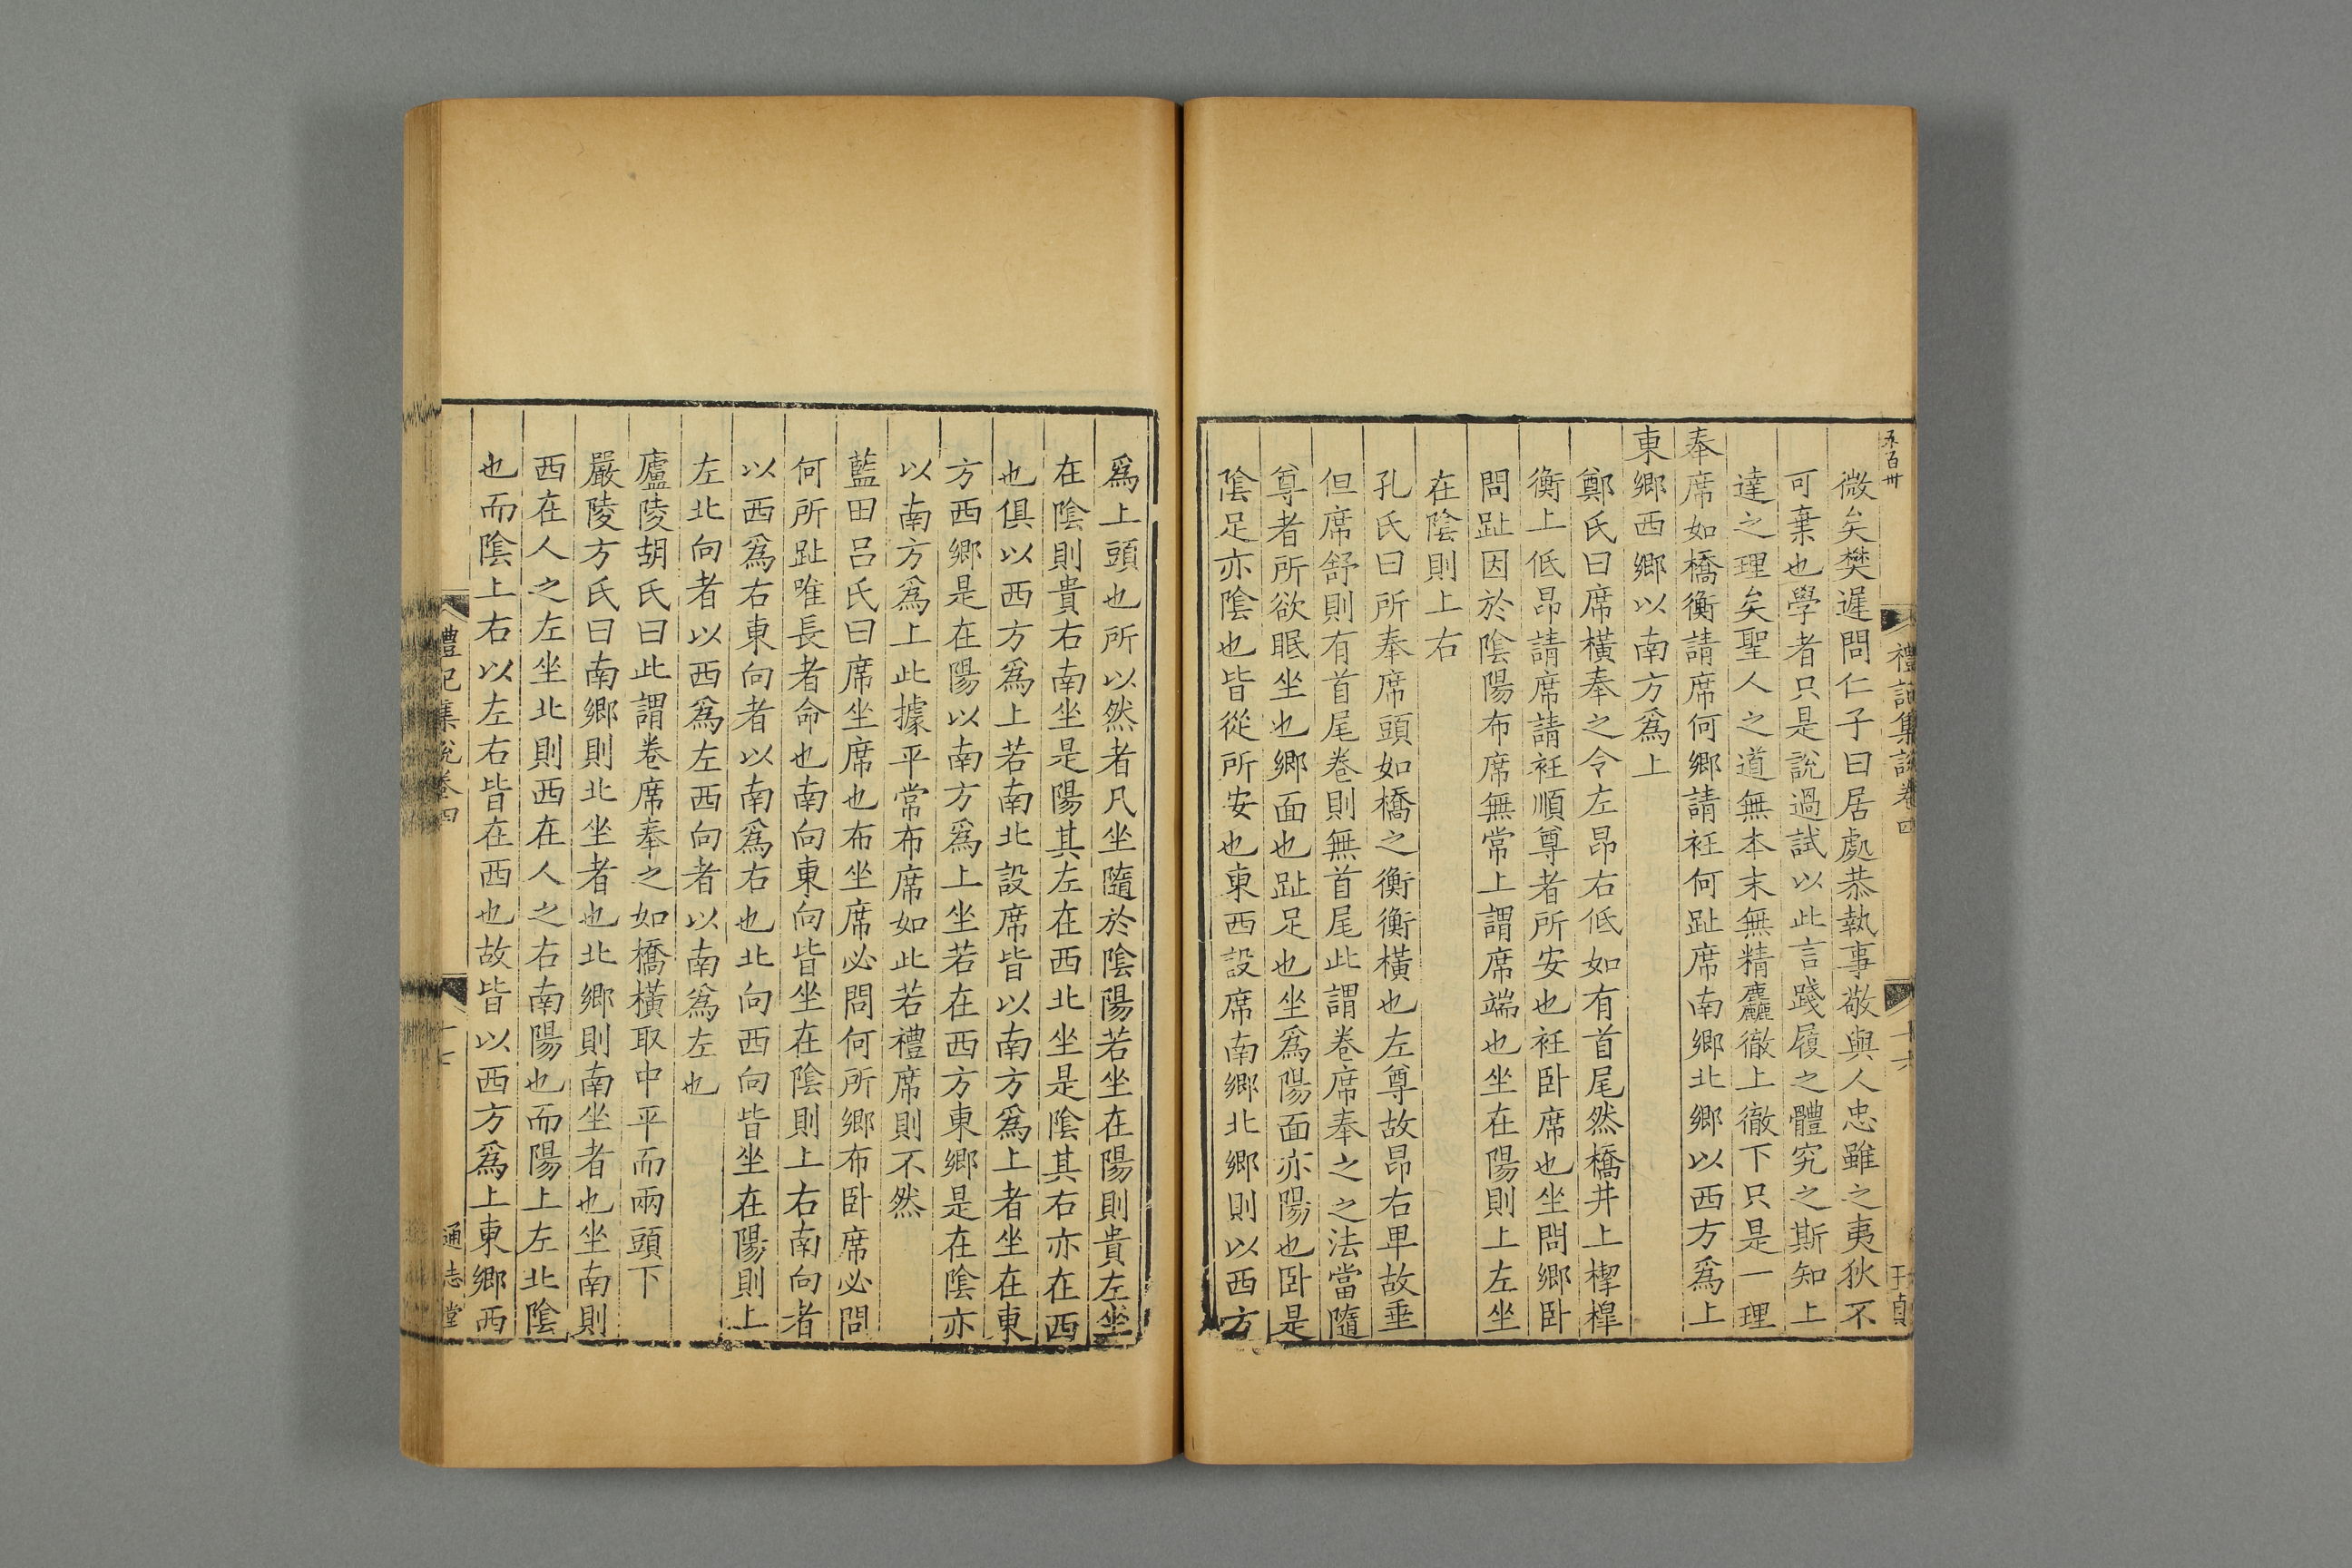 五百卅
禮記集說卷四
十六
微矣樊遲問仁子曰居處恭執事敬與人忠雖之夷狄不
可棄也學者只是說過試以此言踐履之體究之斯知上
達之理矣聖人之道無本末無精麤徹上徹下只是一理
奉席如橋衡請席何鄉請衽何趾席南鄉北鄉以西方爲上
東鄉西鄉以南方爲上
鄭氏曰席橫奉之令左昂右低如有首尾然橋井上㮮槹
衡上低昂請席請衽順尊者所安也衽臥席也坐問鄉臥
問趾因於陰陽布席無常上謂席端也坐在陽則上左坐
在陰則上右
孔氏曰所奉席頭如橋之衡衡橫也左尊故昂右卑故垂
但席舒則有首尾卷則無首尾此謂卷席奉之之法當隨
尊者所欲眠坐也鄉面也趾足也坐爲陽面亦陽也臥是
陰足亦陰也皆從所安也東西設席南鄉北鄉則以西方
爲上頭也所以然者凡坐隨於陰陽若坐在陽則貴左坐
在陰則貴右南坐是陽其左在西北坐是陰其右亦在西
也俱以西方爲上若南北設席皆以南方爲上者坐在東
方西鄉是在陽以南方爲上坐若在西方東鄉是在陰亦
以南方爲上此據平常布席如此若禮席則不然
藍田呂氏曰席坐席也布坐席必問何所鄉布臥席必問
何所趾唯長者命也南向東向皆坐在陰則上右南向者
以西爲右東向者以南爲右也北向西向皆坐在陽則上
左北向者以西爲左西向者以南爲左也
廬陵胡氏曰此謂卷席奉之如橋橫取中平而兩頭下
嚴陵方氏曰南鄉則北坐者也北鄉則南坐者也坐南則
西在人之左坐北則西在人之右南陽也而陽上左北陰
也而陰上右以左右皆在西也故皆以西方爲上東鄉西
禮記集說卷四
十七
通志堂